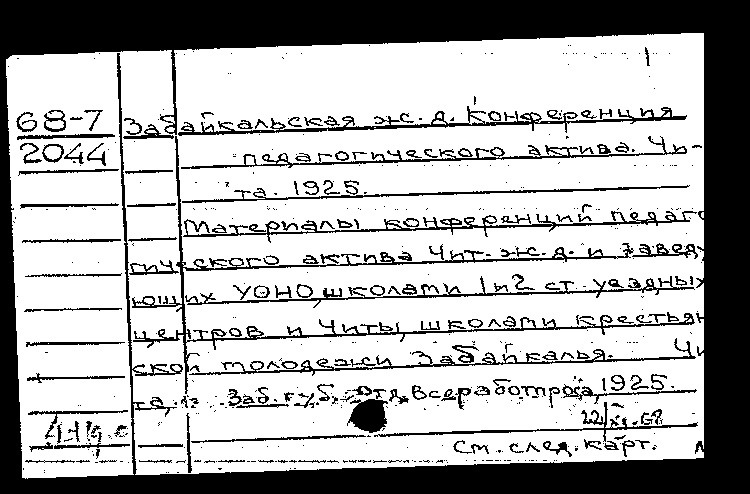 68-7 Забайкальская ж.д. Конференция
2044 педагогического актива. Чи-
та. 1925.
Материалы конференций педаго
гического актива Чит. ж.д. и завед
ющих УОНО, школами 1 и 2 ст. уездных
центров и Читы, школами крестьян
ской молодежи Забайкалья. Чи
та, Заб. губ. отд. Всеработпроса, 1925.
См. след. карт.